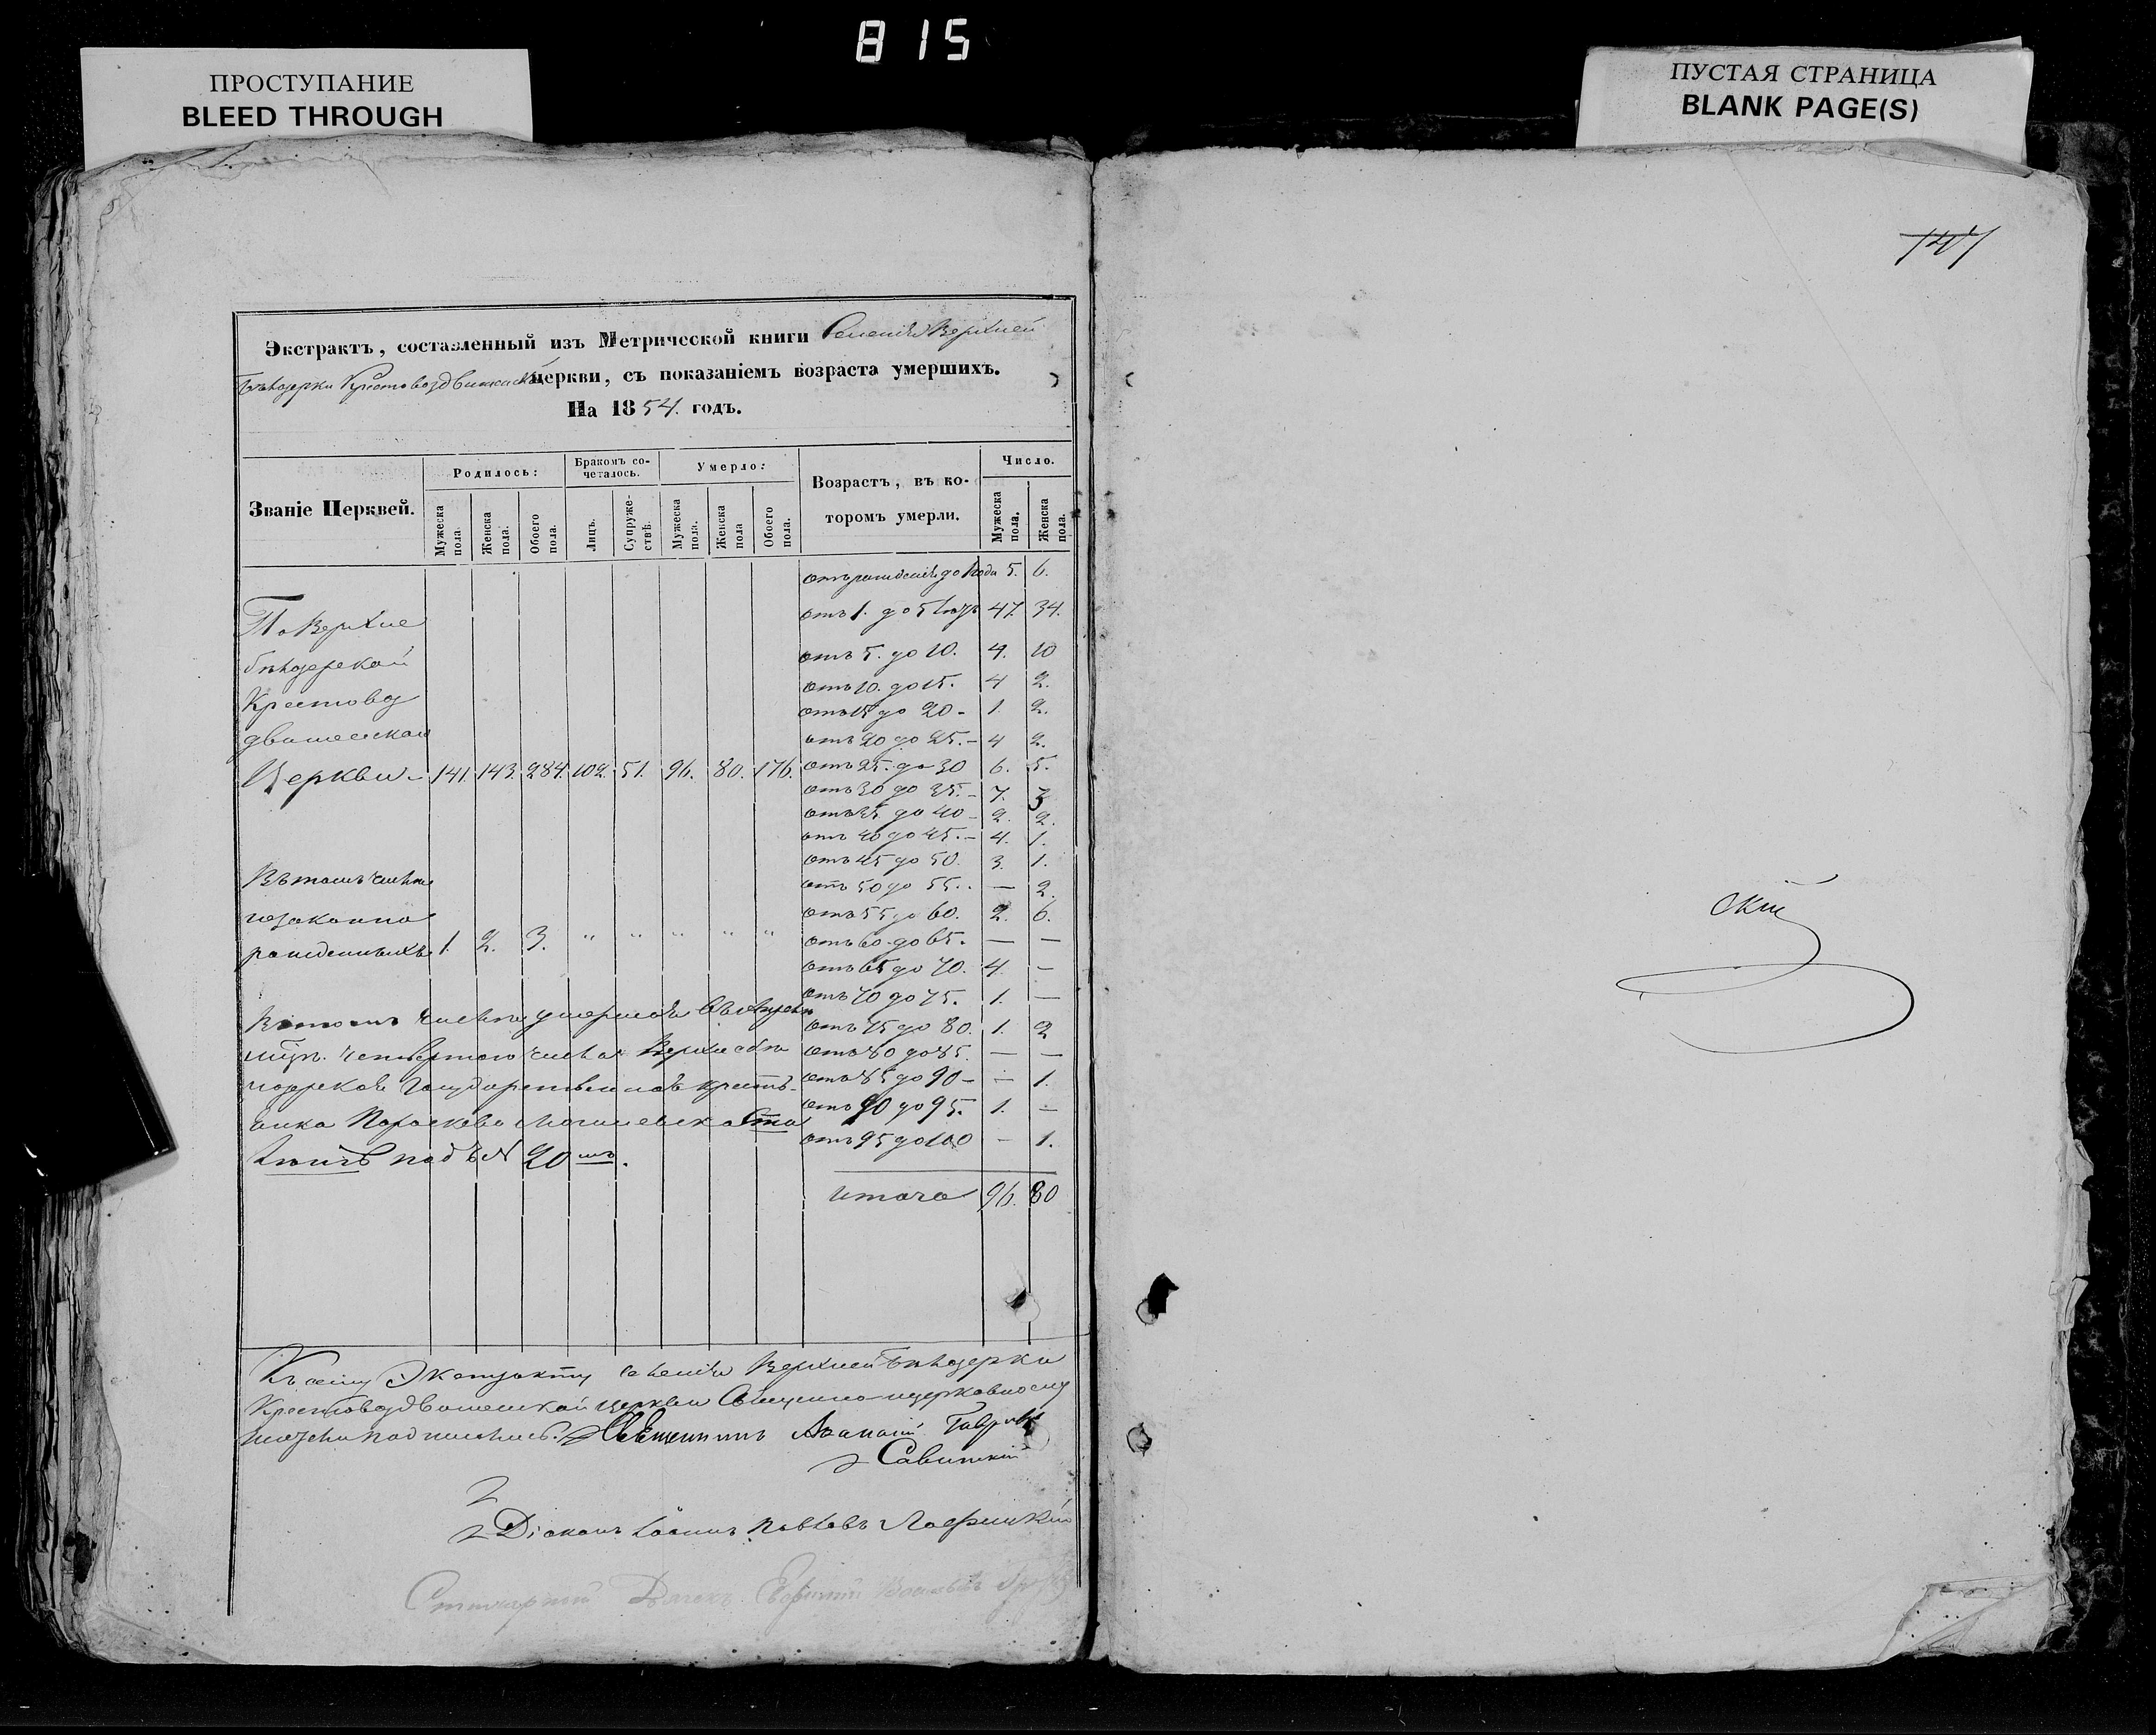 815
ПРОСТУПАНИЕ
BLEED THROUGH
ПУСТАЯ СТРАНИЦА
BLANK PAGE(S)
Экстрактъ, составленный изъ Метрической книги Селенія Верхней
Бѣлозерки Крестовоздвиженской церкви, съ показаніемъ возраста умершихъ.
На 1854. годъ.
Званіе Церквей.
Родилось:
Бракомъ сочеталось.
Умерло:
Возрастъ, въ которомъ умерли.
Число.
Мужеска пола.
Женска пола.
Обоего пола.
Лицъ.
Супружествъ.
Мужеска пола.
Женска пола
Обоего пола.
Мужеска пола.
Женска пола.
отъ рожденія до 1 года 5. 6.
отъ 1. до 5 47. 34.
отъ 5. до 10. 4. 10
отъ 10. до 15. 4 2.
отъ 15 до 20 - 1. 2.
отъ 20 до 25. - 4 2.
По Верхне
бѣлозерской
Крестовоз
движенской
Церкви - 141. 143. 284. 102. 51. 96. 80. 176. отъ 25. до 30 6. 5.
отъ 30 до 35. - 7. 3
отъ 35 до 40 - 2. 2.
отъ 40 до 45. - 4. 1.
отъ 45 до 50. 3. 1.
отъ 50 до 55. — 2.
отъ 55 до 60. 2. 6.
отъ 60. до 65. — —
отъ 65 до 70. 4. -
отъ 70 до 75. 1. —
отъ 75 до 80. 1. 2
отъ 80 до 85. — —
отъ 85 до 90 - — 1.
отъ 90 до 95. 1. —
отъ 95 до 100 - 1.
итого 96. 80
Въ томъ числѣ
незаконно
рожденныхъ 1. 2. 3. " " " " "
Въ томъ числѣ умершая
четвертого числа Верхнебѣ
лозерская Государственная кресть-
янка Параскева Ста
лѣтъ подъ N 20мъ.
Къ сему Экстракту селенія Верхней Бѣлозерки
Крестовоздвиженской церкви Священноцерковнослу
жители подписались: Священникъ Гаврил
Савицкій
Діаконъ Іоаннъ Павловъ
Стихарный Дьячекъ
147
ский